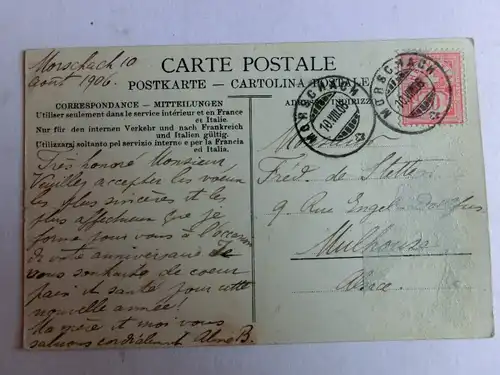 Morschach 10
août 1906.
CARTE POSTALE
POSTKARTE - CARTOLINA POSTALE
CORRESPONDANCE - MITTEILUNGEN
Utiliser seulement dans le service intérieur et en France
et Italie.
Nur für den internen Verkehr und nach Frankreich
und Italien gültig.
Utilizzarsi soltanto pel servizio interno e per la Francia
ed Italia.
Très honoré Monsieur
Veuillez accepter les voeux
les plus sincères et les
plus affectueux que je
forme pour vous à l'occasion
de votre anniversaire Je
vous souhaite de coeur
paix et santé pour cette
nouvelle année!
Ma mère et moi vous
saluons cordialement Aline B.
MORSCHACH
10.VIII.06
MORSCHACH
10.VIII.06
Monsieur
Fred. de Stetten
9 Rue Engel-Dollfus
Mulhouse
Alsace